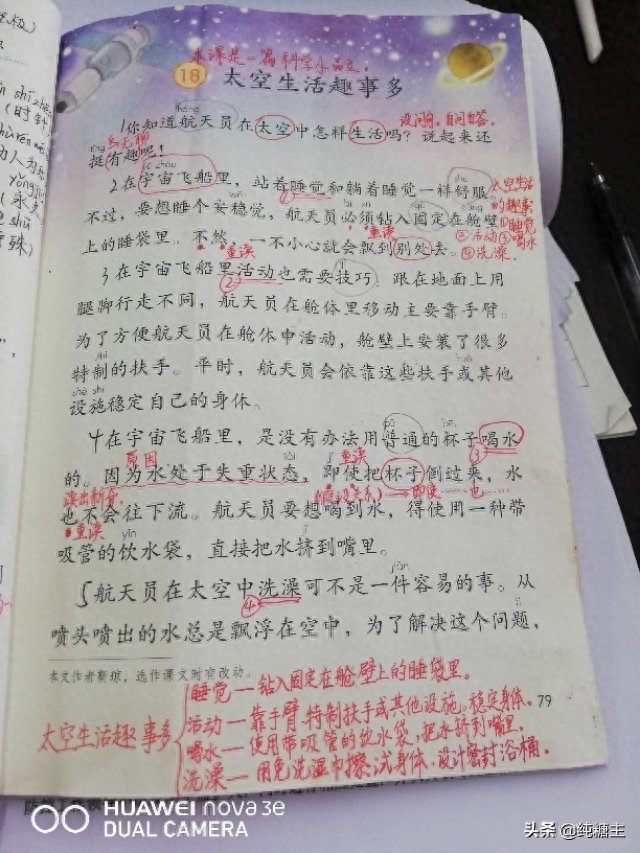 本课是一篇科学小品文。
18 太空生活趣事多
háng
1你知道航天员在太空中怎样生活吗?说起来还
设问句,自问自答。
挺有趣呢!
2在宇宙飞船里,站着睡觉和躺着睡觉一样舒服。
太空生活
的趣事
①睡觉
不过,要想睡个安稳觉,航天员必须钻入固定在舱壁
②活动③喝水
④洗澡。
上的睡袋里。不然,一不小心就会飘到别处去。
重读
重读
3在宇宙飞船里活动也需要技巧。跟在地面上用
②
腿脚行走不同,航天员在舱体里移动主要靠手臂。
为了方便航天员在舱体中活动,舱壁上安装了很多
特制的扶手。平时,航天员会依靠这些扶手或其他
shè shī
设施稳定自己的身体。
4在宇宙飞船里,是没有办法用普通的杯子喝水
原因
重读
③
的。因为水处于失重状态,即使把杯子倒过来,水
即使……也……
也不会往下流。航天员要想喝到水,得使用一种带
重读
yǐn
jǐ
吸管的饮水袋,直接把水挤到嘴里。
jiàn
5航天员在太空中洗澡可不是一件容易的事。从
④
喷头喷出的水总是飘浮在空中,为了解决这个问题,
本文作者靳琼,选作课文时有改动。
79
太空生活趣事多
睡觉—钻入固定在舱壁上的睡袋里。
活动—靠手臂、特制扶手或其他设施。稳定身体。
喝水—使用带吸管的饮水袋,把水挤到嘴里。
洗澡—用免洗湿巾擦试身体、设计密封浴桶。
HUAWEI nova 3e
DUAL CAMERA
头条 @纯糖主